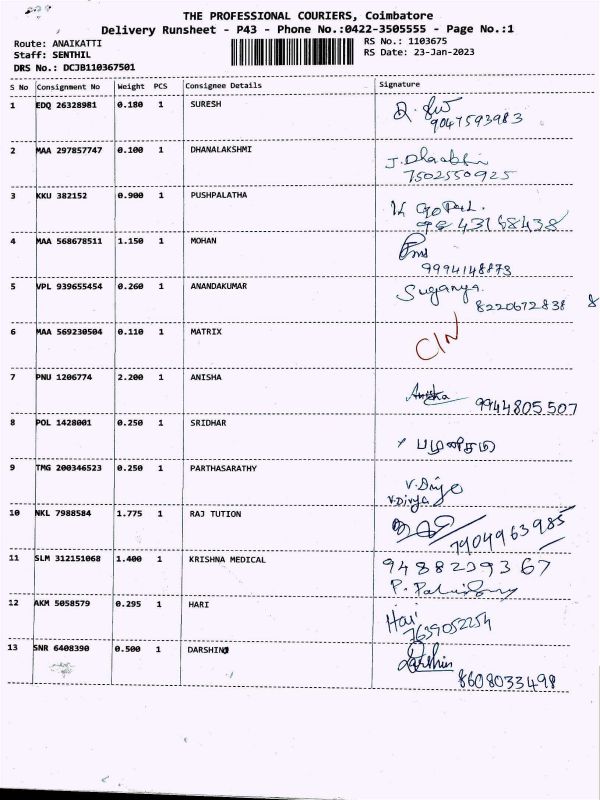 THE PROFESSIONAL COURIERS, Coimbatore
Delivery Runsheet - P43 - Phone No.:0422-3505555 - Page No.:1
Route: ANAIKATTI RS No.: 1103675
Staff: SENTHIL RS Date: 23-Jan-2023
DRS No.: DCJB110367501
S No Consignment No Weight PCS Consignee Details Signature
1 EDQ 26328981 0.180 1 SURESH
9047593983
2 MAA 297857747 0.100 1 DHANALAKSHMI
7502550925
3 KKU 382152 0.900 1 PUSHPALATHA
4 MAA 568678511 1.150 1 MOHAN
9994148873
5 VPL 939655454 0.260 1 ANANDAKUMAR Suganya.
8220672838 8
6 MAA 569230504 0.110 1 MATRIX
7 PNU 1206774 2.200 1 ANISHA Anisha 9944805507
8 POL 1428001 0.250 1 SRIDHAR
9 TMG 200346523 0.250 1 PARTHASARATHY
V.Divya
10 NKL 7988584 1.775 1 RAJ TUTION
7904963985
11 SLM 312151068 1.400 1 KRISHNA MEDICAL 9488239367
12 AKM 5058579 0.295 1 HARI Hari
7639052254
13 SNR 6408390 0.500 1 DARSHINI Darshini
8608033498